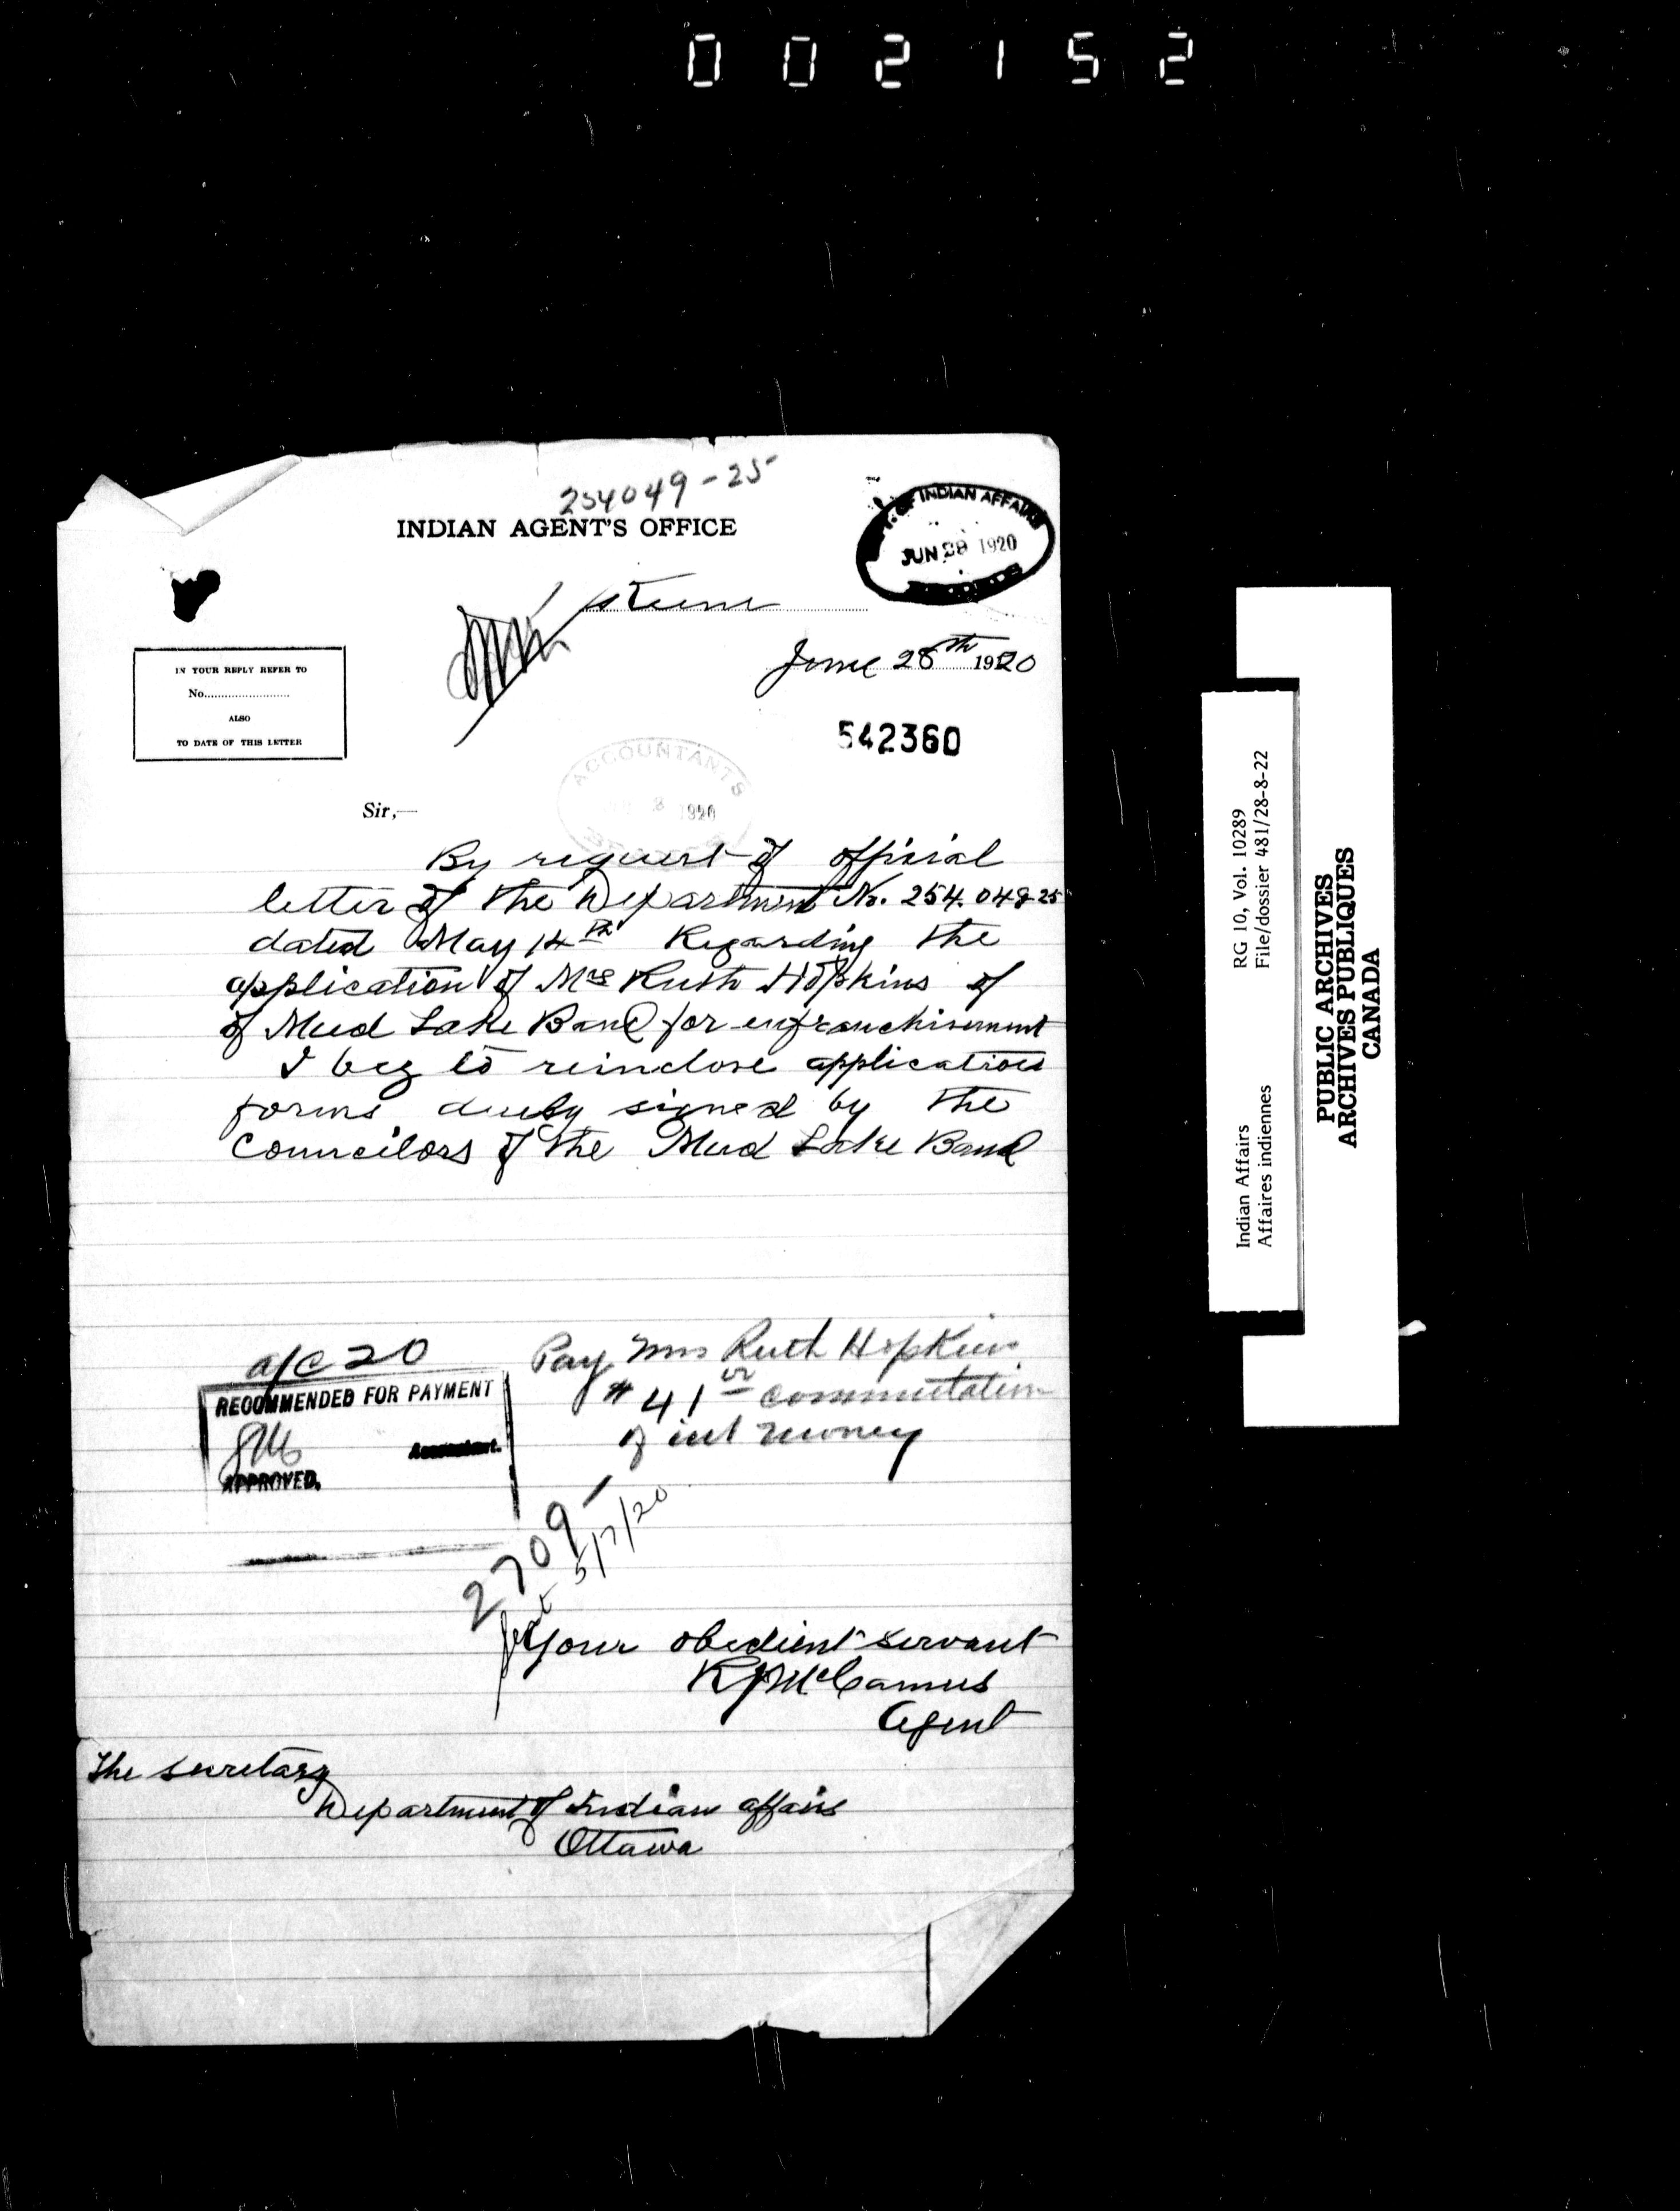 002152
254049-25
INDIAN AGENT'S OFFICE
OF INDIAN AFFAIRS
JUN 29 1920
Keene
June 28th 1920
IN YOUR REPLY REFER TO
No.
ALSO
TO DATE OF THIS LETTER
542360
ACCOUNTANTS
1920
Sir,—
By request of official
letter of the Department No. 254.049-25
dated May 14th Regarding the
application of Mrs Ruth Hopkins of
of Mud Lake Band for enfranchisement
I beg to reinclose application
forms duely signed by the
Councilors of the Mud Lake Band
a/c 20
RECOMMENDED FOR PAYMENT
Accountant.
APPROVED.
Pay Mrs Ruth Hopkins
$41 commutation
of int money
2709
5/7/20
Your obedient servant
R J McCamus
Agent
The Secretary
Department of Indian affairs
Ottawa
Indian Affairs RG 10, Vol. 10289
Affaires indiennes File/dossier 481/28-8-22
PUBLIC ARCHIVES
ARCHIVES PUBLIQUES
CANADA